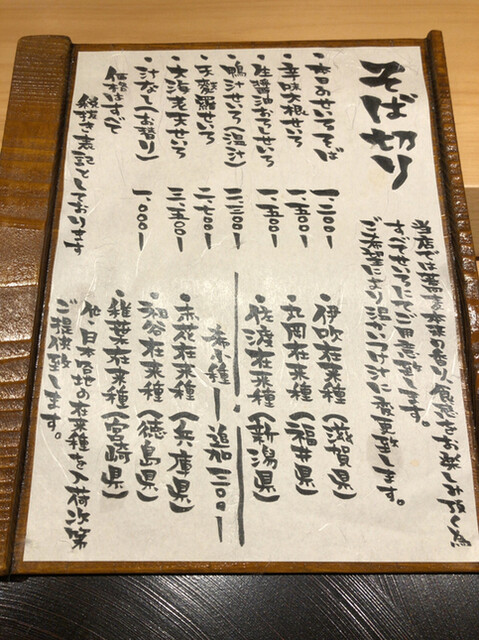 そば切り
当店では蕎麦本来の香り、食感をお楽しみ頂く為
すべてせいろにてご用意致します。
ご希望により温かいつけ汁に変更致します。
・本日のせいろそば 一、二〇〇ー
・辛味大根せいろ 一、五〇〇ー
・生醤油おろしせいろ 一、五〇〇ー
・鴨汁せいろ(温汁) 二、二〇〇ー
・天麩羅せいろ 二、七〇〇ー
・大海老天せいろ 三、五〇〇ー
・汁なし(お替り) 一、〇〇〇ー
価格はすべて
税抜き表記としております
伊吹在来種(滋賀県)
丸岡在来種(福井県)
佐渡在来種(新潟県)
希少種 追加二〇〇ー
・赤花在来種(兵庫県)
・祖谷在来種(徳島県)
・椎葉在来種(宮崎県)
他、日本各地の在来種を入荷次第
ご提供致します。